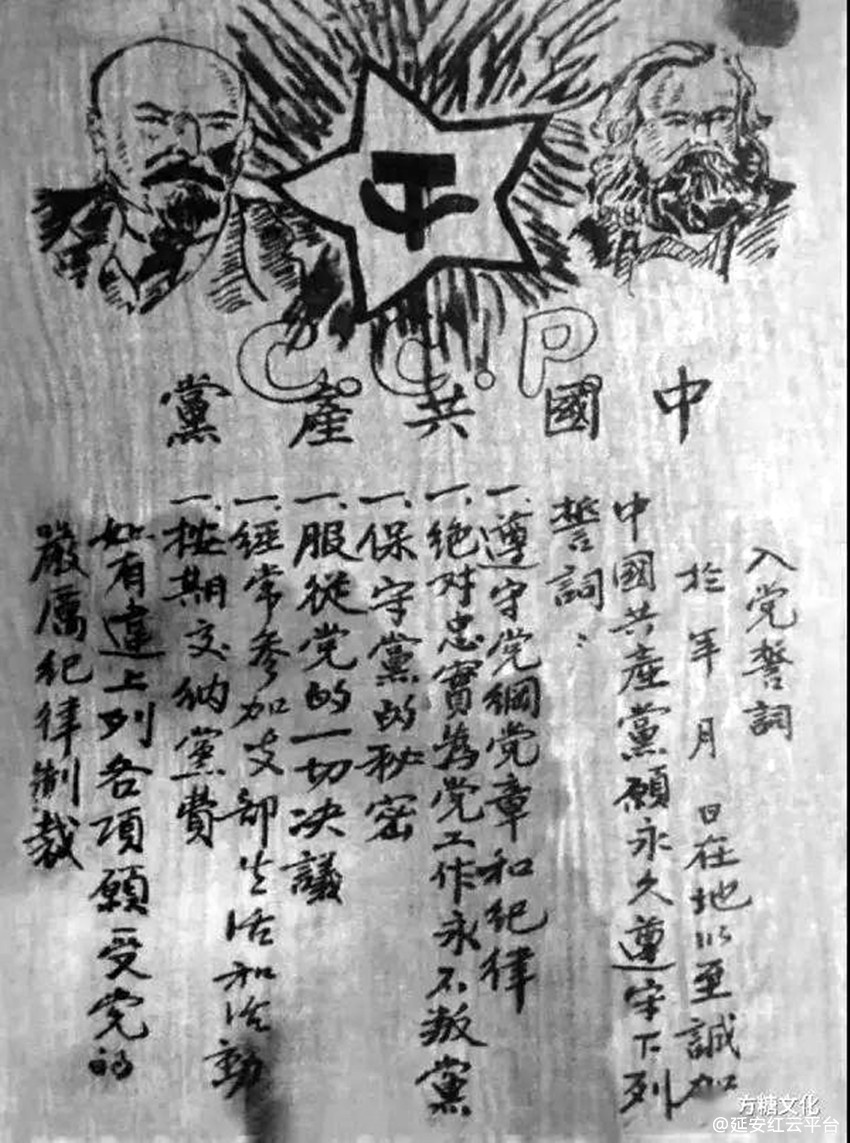 C.C.P.
中國共產黨
入党誓詞
於 年 月 日在地以至誠加
中國共產黨願永久遵守下列
誓詞：
一.遵守党綱党章和纪律
一.绝对忠實為党工作永不叛黨
一.保守黨的秘密
一.服從党的一切决議
一.經常參加支部生活和活動
一.按期交纳黨費
如有違上列各項願受党的
嚴厲纪律制裁
方糖文化
@延安红云平台